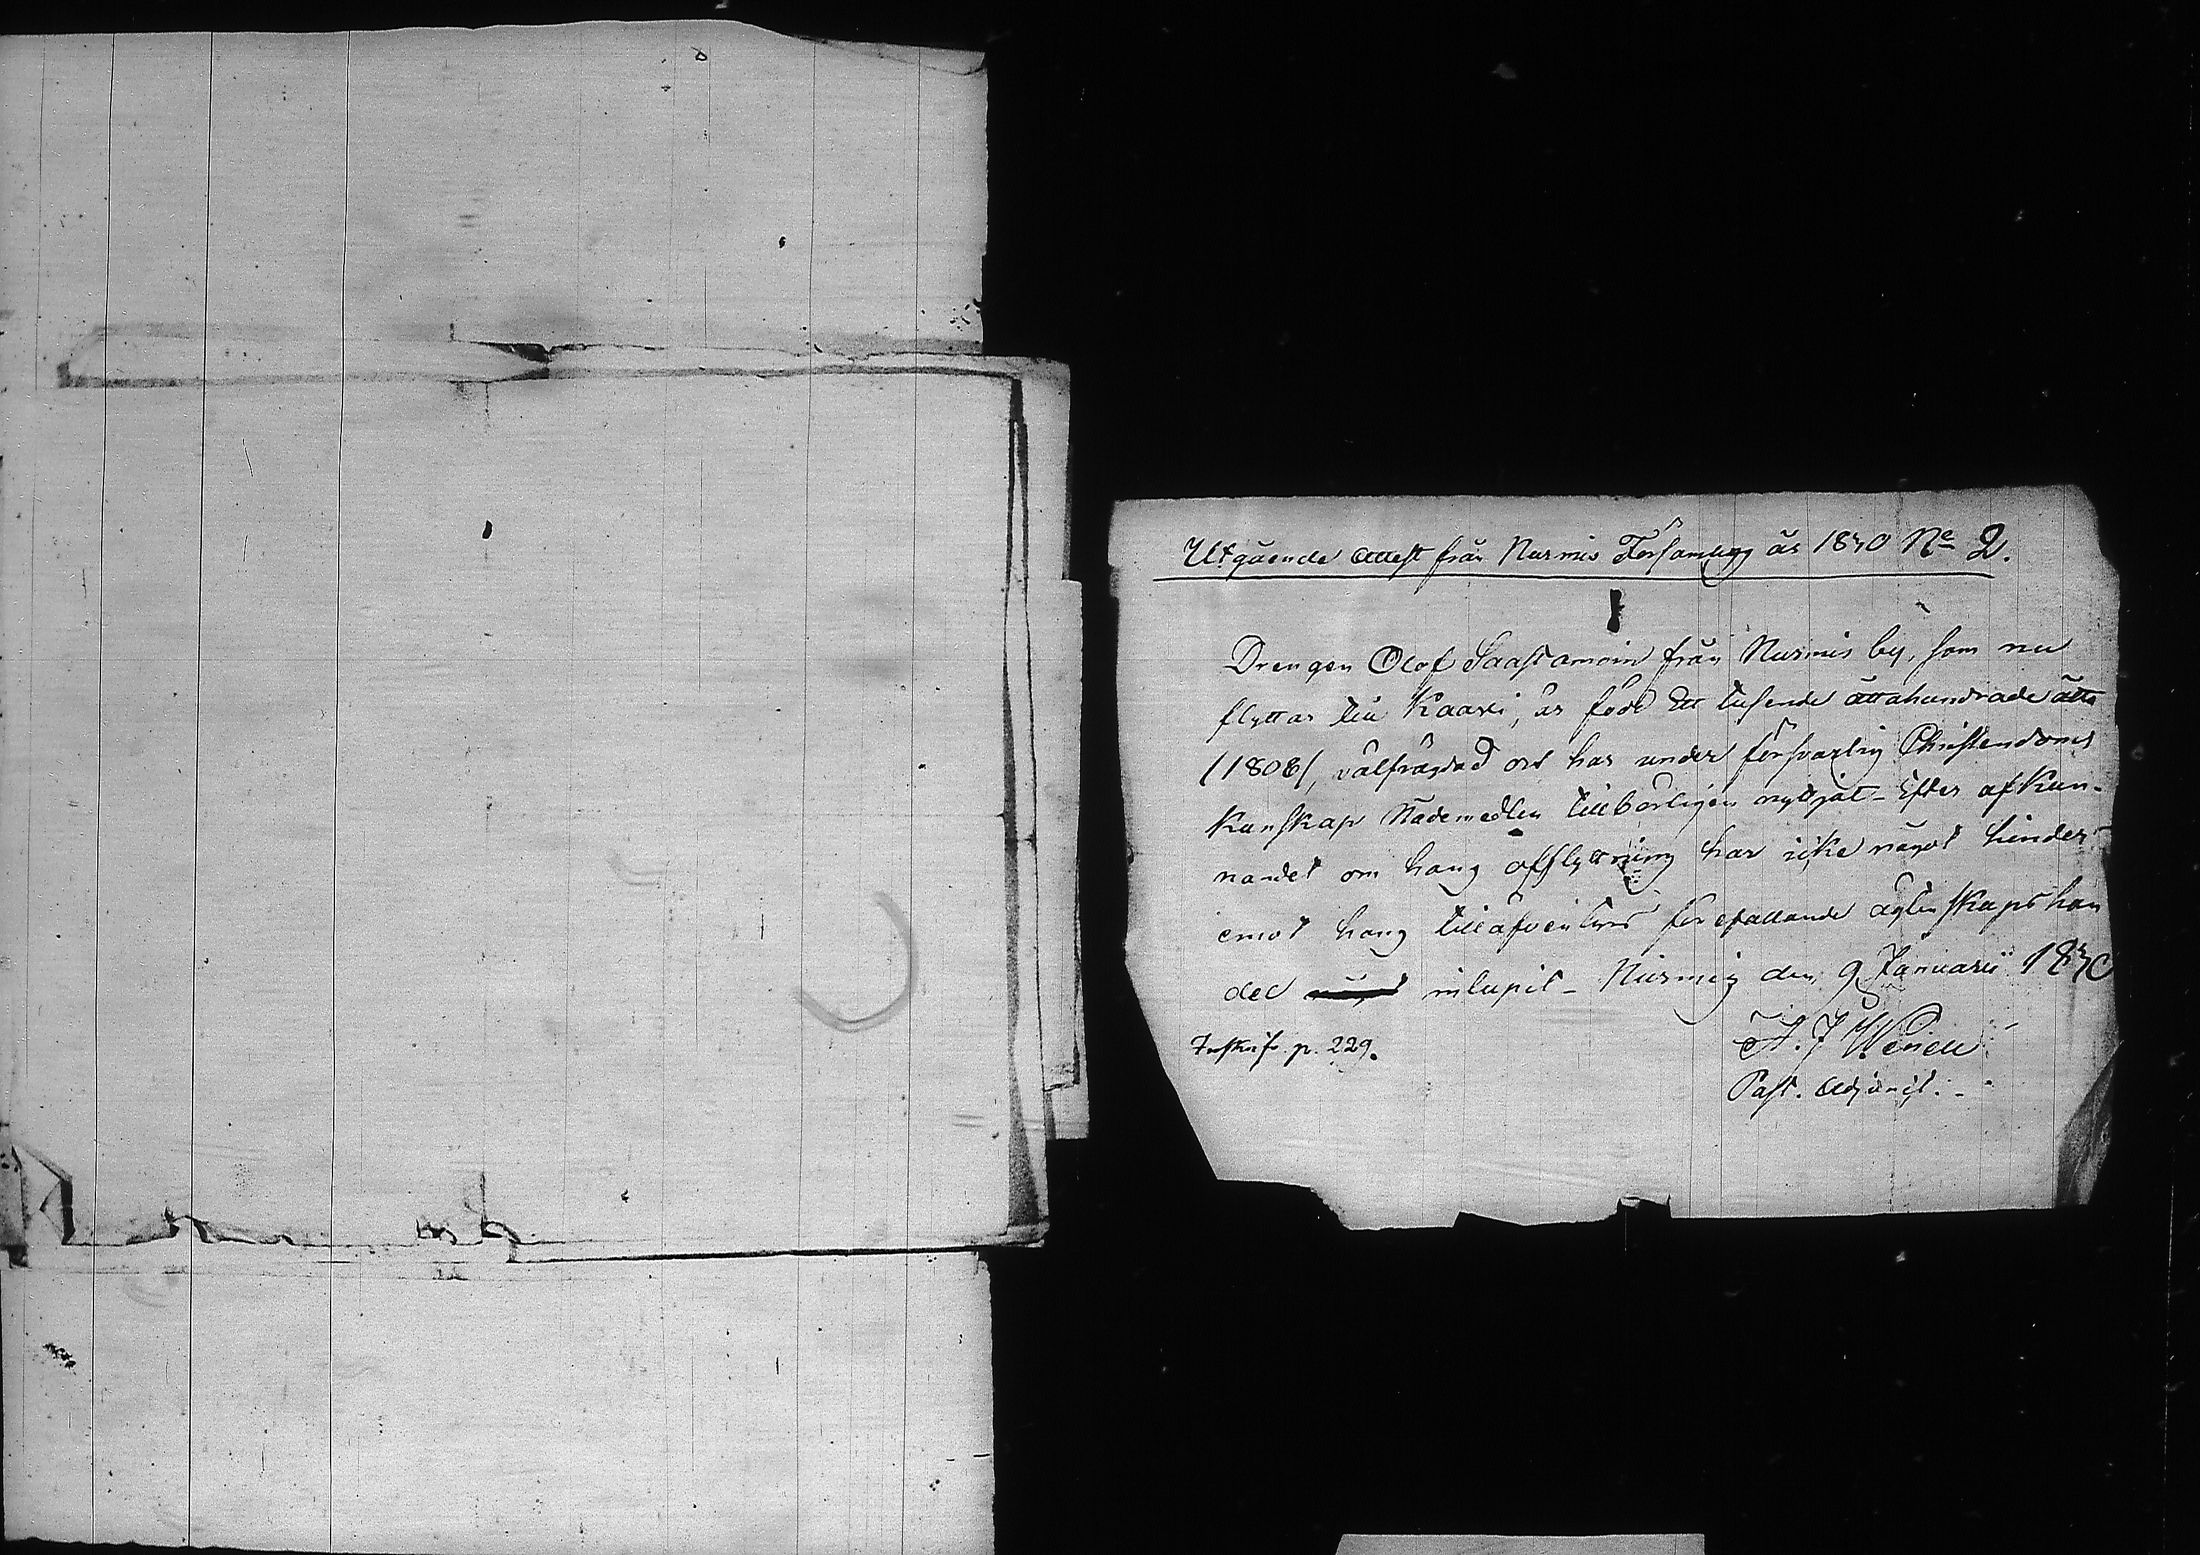 Utgående Attest från Nurmis Församling år 1830 No 2.
Drengen Olof Saastamoin från Nurmis by, som nu
flyttar till Kaavi, är född Ett tusende åttahundrade åtta
/1808/, välfrägdad och har under försvarlig Christendoms
Kunskap Nådemedlen tillbörligen nyttjat - Efter afkun-
nandet om hans afflyttning har icke något hinder
emot hans tilläfventyrs förefallande ägtenskapshan
del inlupit - Nurmis den 9 Januarii 1830
A. J. Wenell
Inskrifv. p. 229.
Past. Adjunct. -